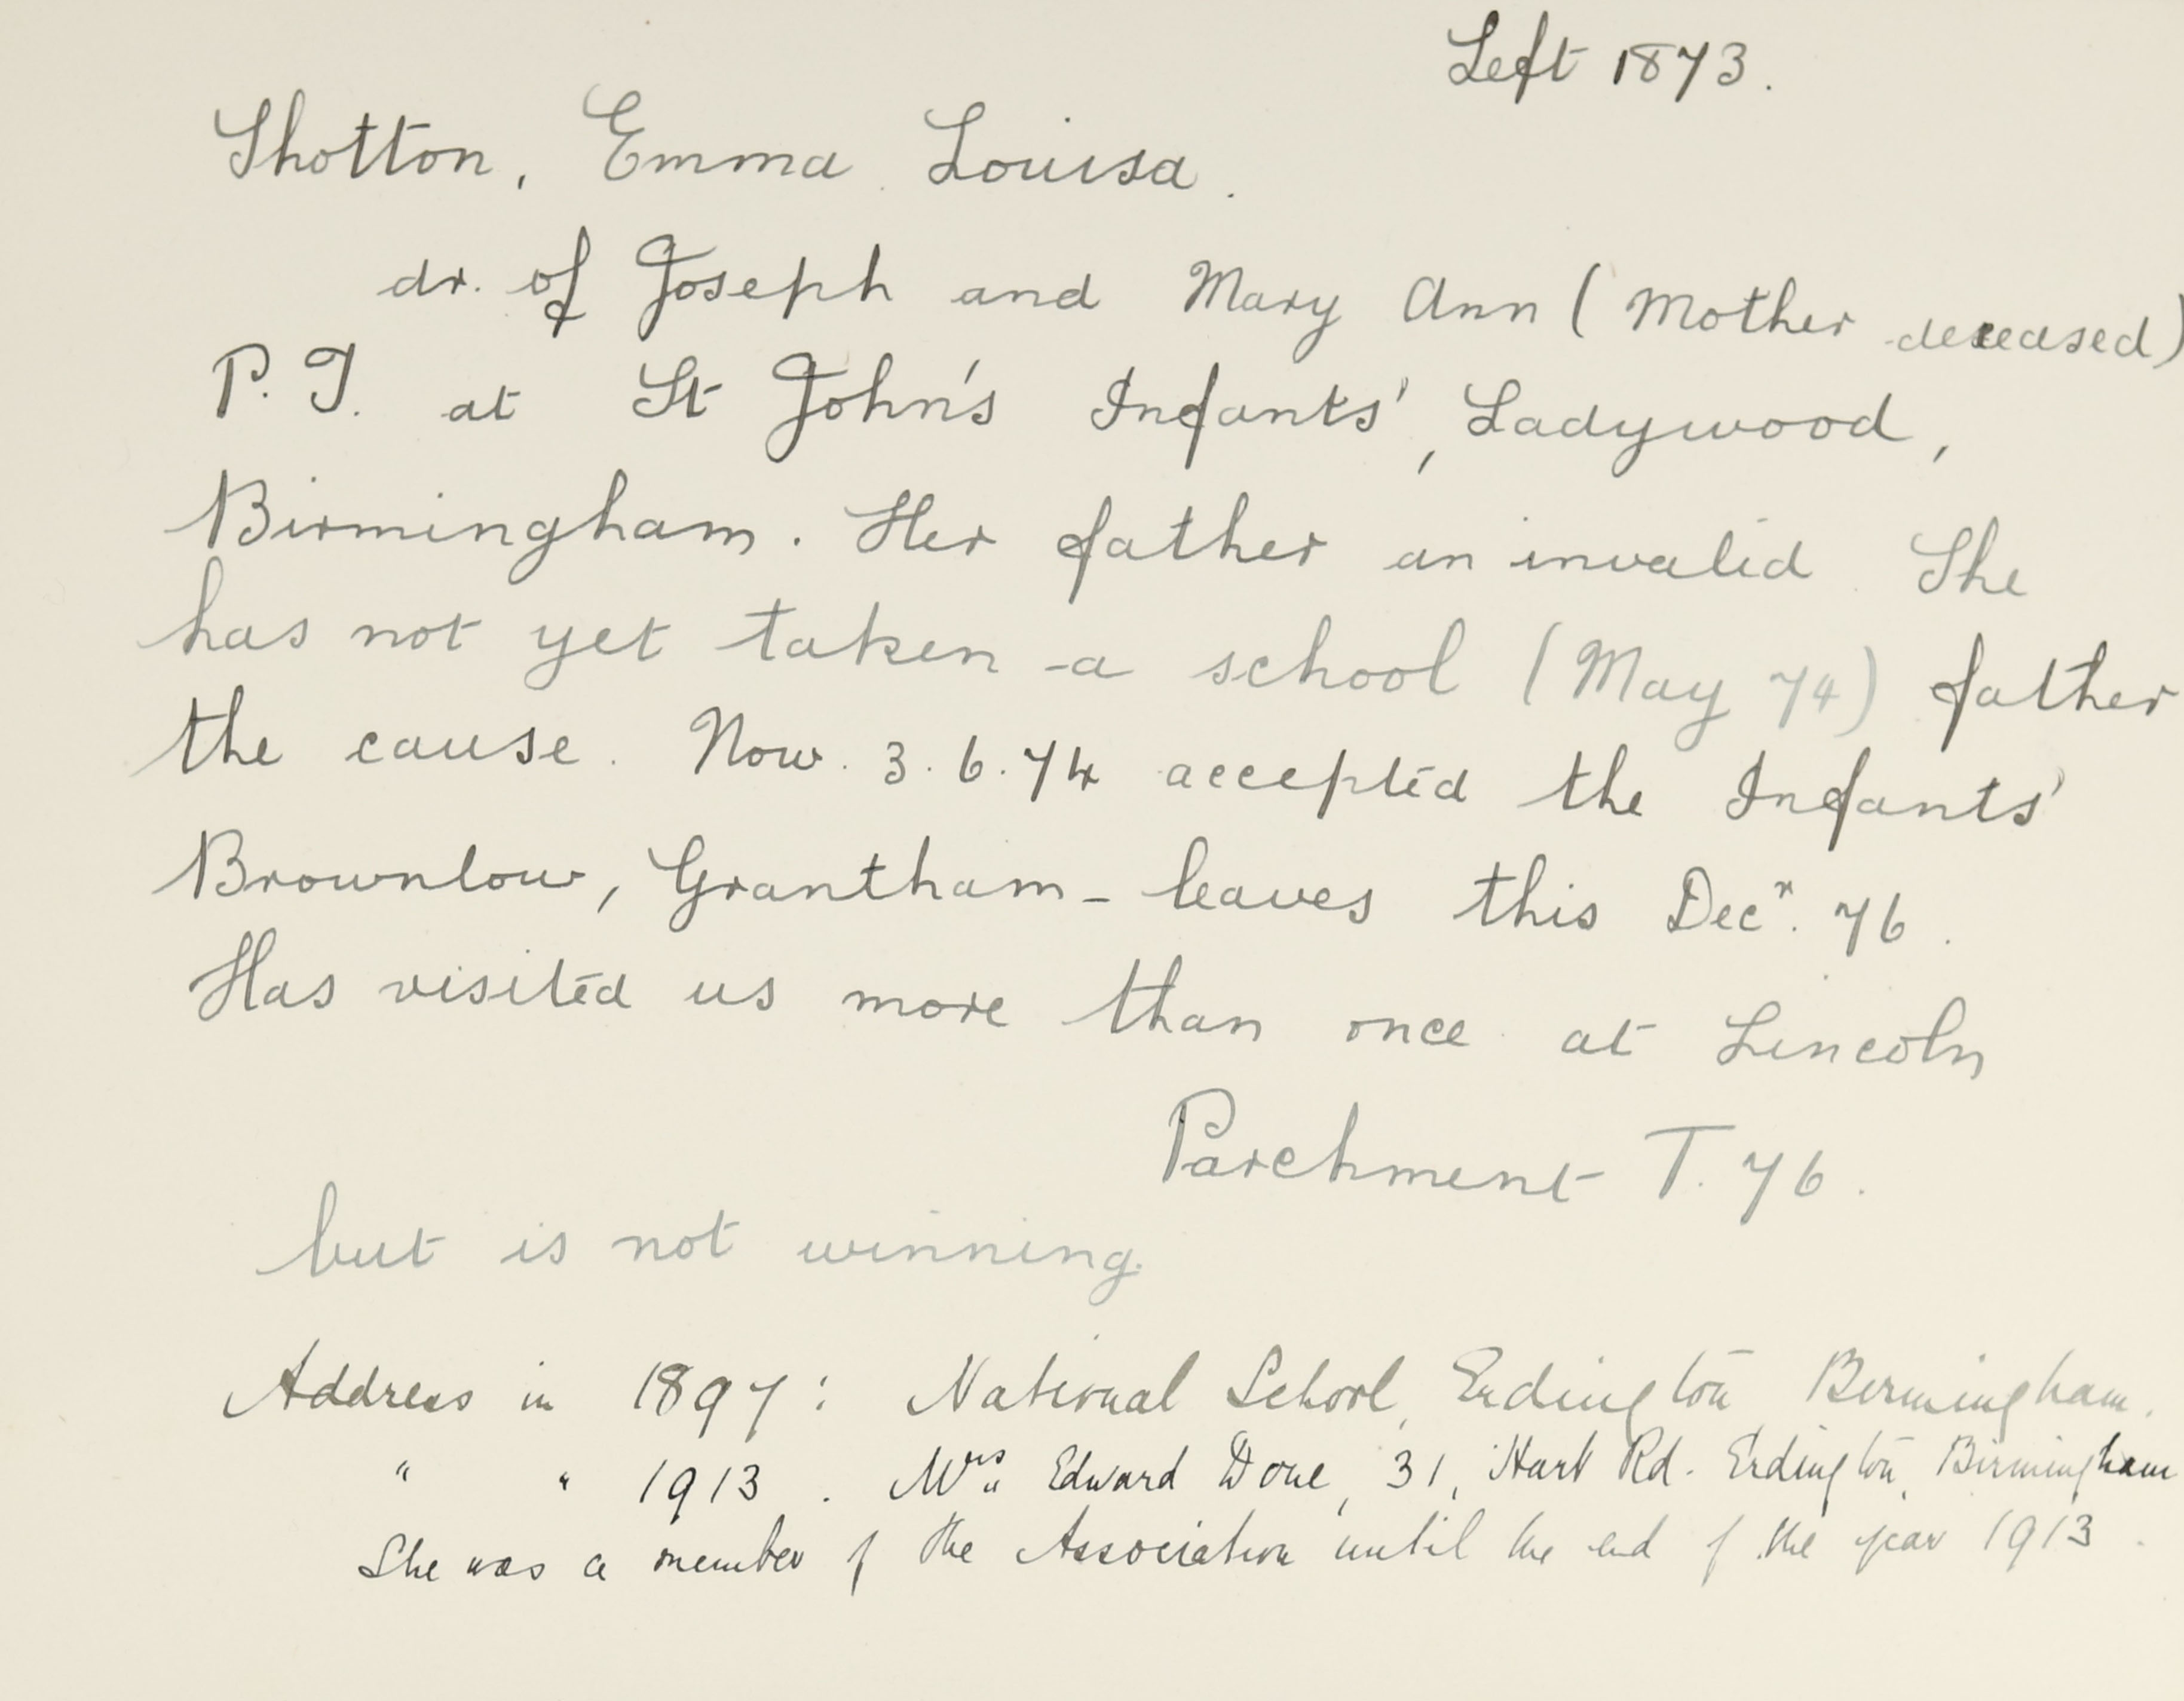 Left 1873.
Shotton, Emma Louisa.
dr. of Joseph and Mary Ann (Mother deceased)
P.T. at St John's Infants', Ladywood,
Birmingham. Her father an invalid. She
has not yet taken a school (May 74) father
the cause. Now. 3.6.74 accepted the Infants'
Brownlow, Grantham - leaves this Decr. 76.
Has visited us more than once at Lincoln
Parchment T. 76.
but is not winning.
Address in 1897: National School, Erdington, Birmingham.
" " 1913. Mrs. Edward Done, 31, Hart Rd. Erdington, Birmingham
She was a member of the Association until the end of the year 1913.